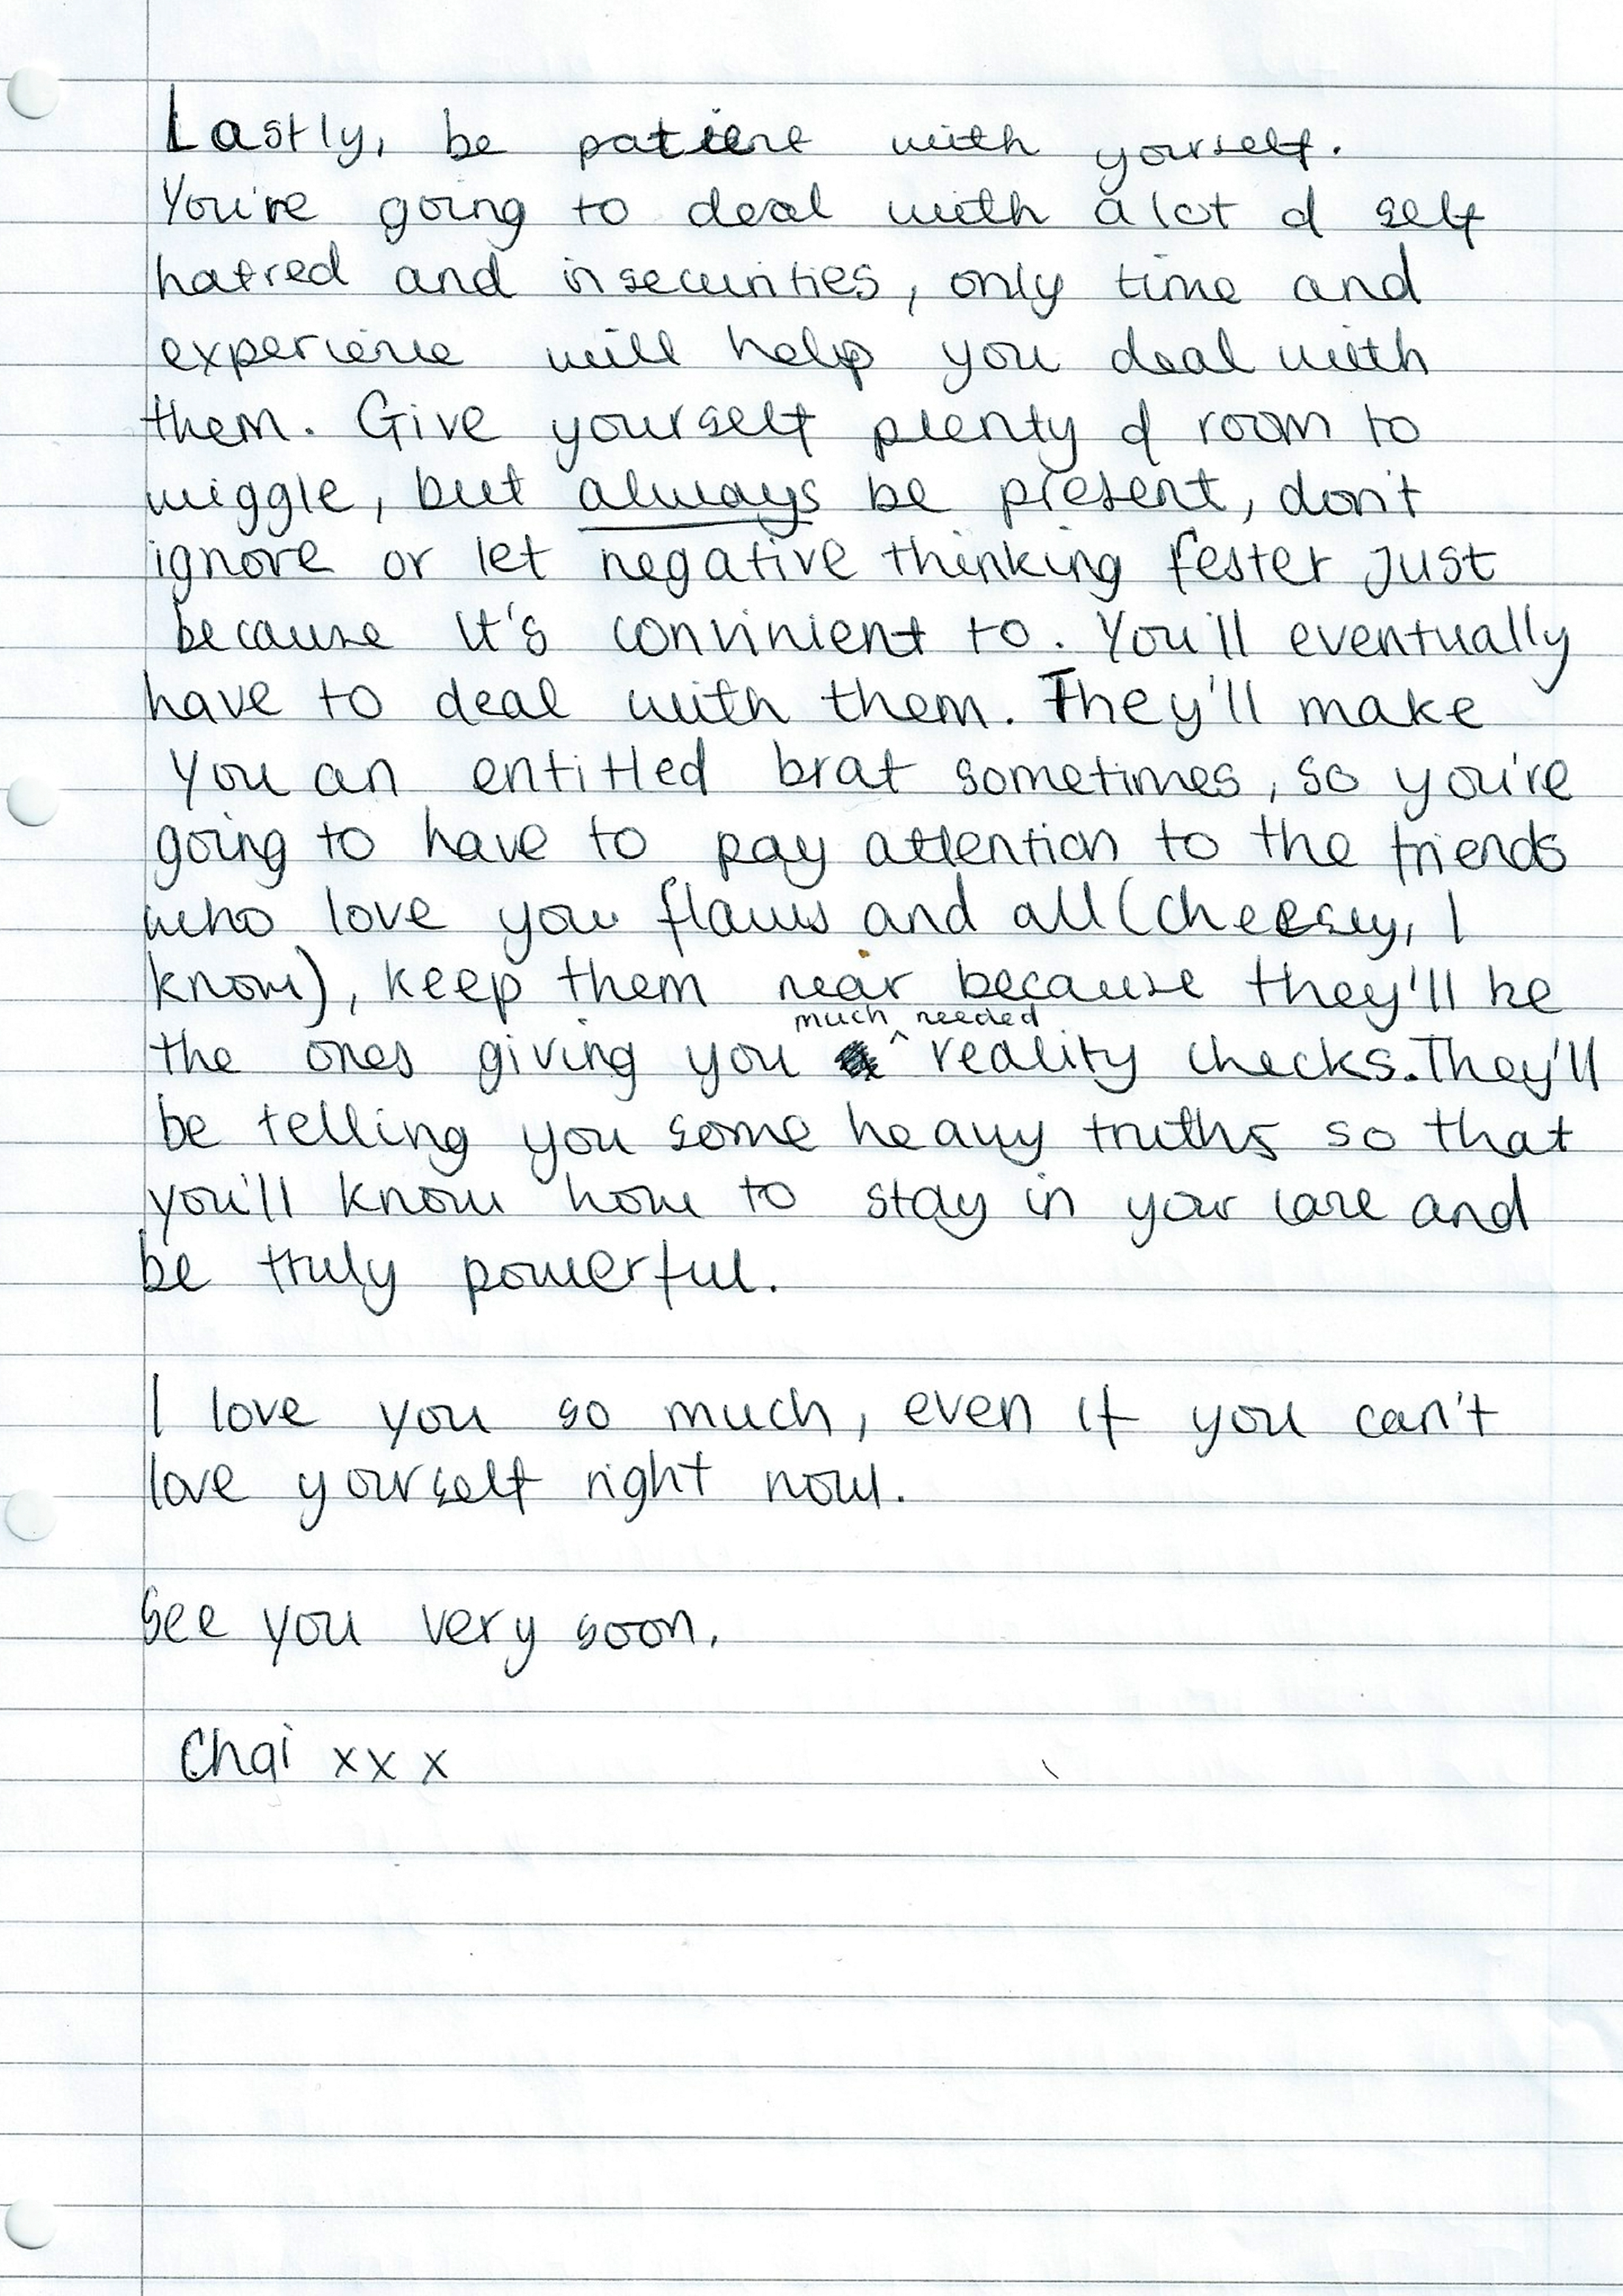 Lastly, be patient with yourself.
You're going to deal with a lot of self
hatred and insecurities, only time and
experience will help you deal with
them. Give yourself plenty of room to
wiggle, but always be present, don't
ignore or let negative thinking fester just
because it's convinient to. You'll eventually
have to deal with them. They'll make
you an entitled brat sometimes, so you're
going to have to pay attention to the friends
who love you flaws and all (cheesey, I
know), keep them near because they'll be
much needed
the ones giving you ^ reality checks. They'll
be telling you some heavy truths so that
you'll know how to stay in your lane and
be truly powerful.
I love you so much, even if you can't
love yourself right now.
See you very soon,
Chai xxx